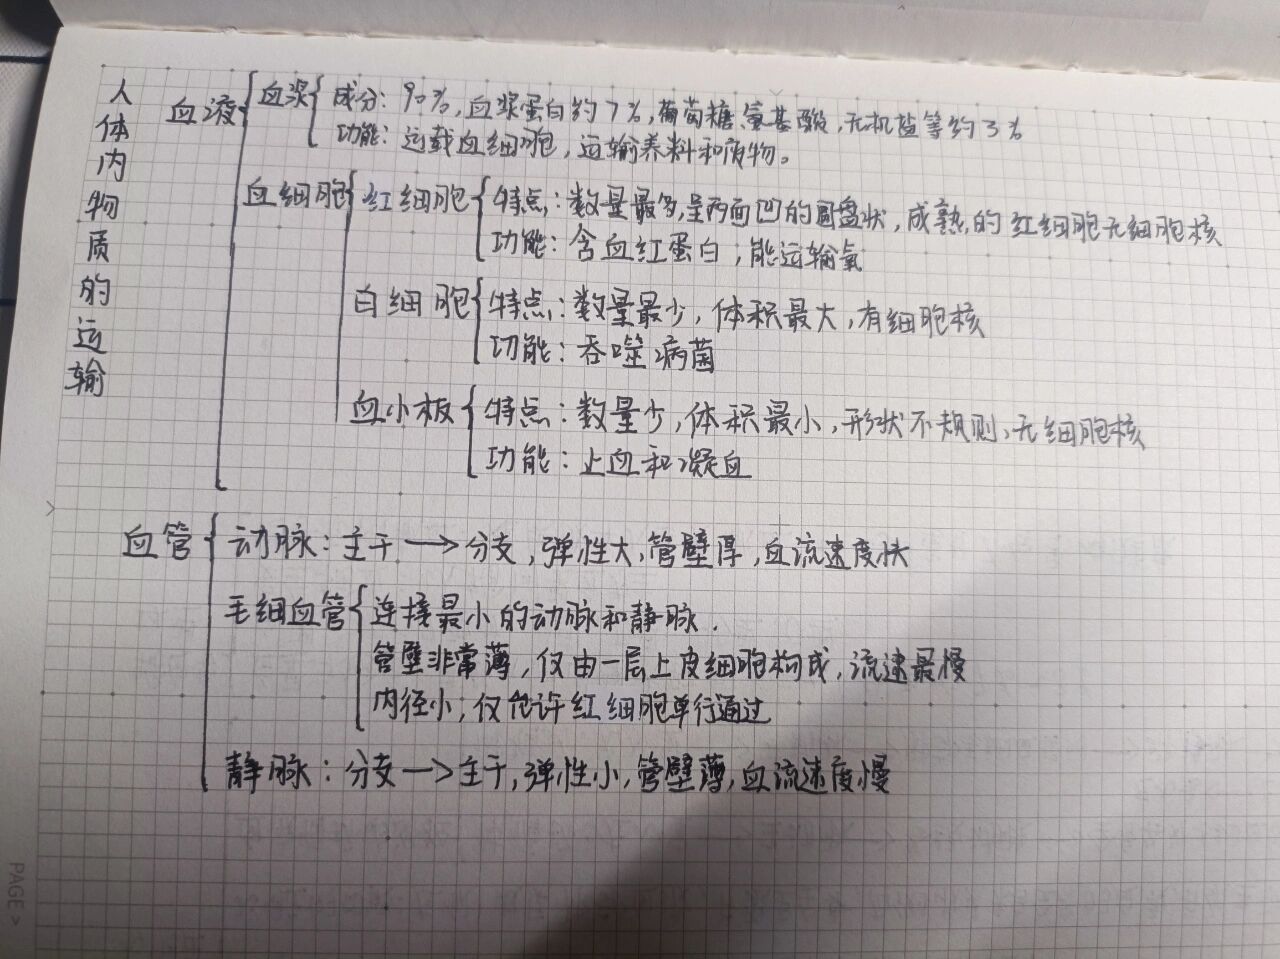 人体内物质的运输
血液
血浆
成分：90%，血浆蛋白约7%，葡萄糖、氨基酸、无机盐等约3%
功能：运载血细胞，运输养料和废物。
血细胞
红细胞
特点：数量最多，呈两面凹的圆盘状，成熟的红细胞无细胞核
功能：含血红蛋白，能运输氧
白细胞
特点：数量最少，体积最大，有细胞核
功能：吞噬病菌
血小板
特点：数量少，体积最小，形状不规则，无细胞核
功能：止血和凝血
血管
动脉：主干→分支，弹性大，管壁厚，血流速度快
毛细血管
连接最小的动脉和静脉.
管壁非常薄，仅由一层上皮细胞构成，流速最慢
内径小，仅允许红细胞单行通过
静脉：分支→主干，弹性小，管壁薄，血流速度慢
PAGE >